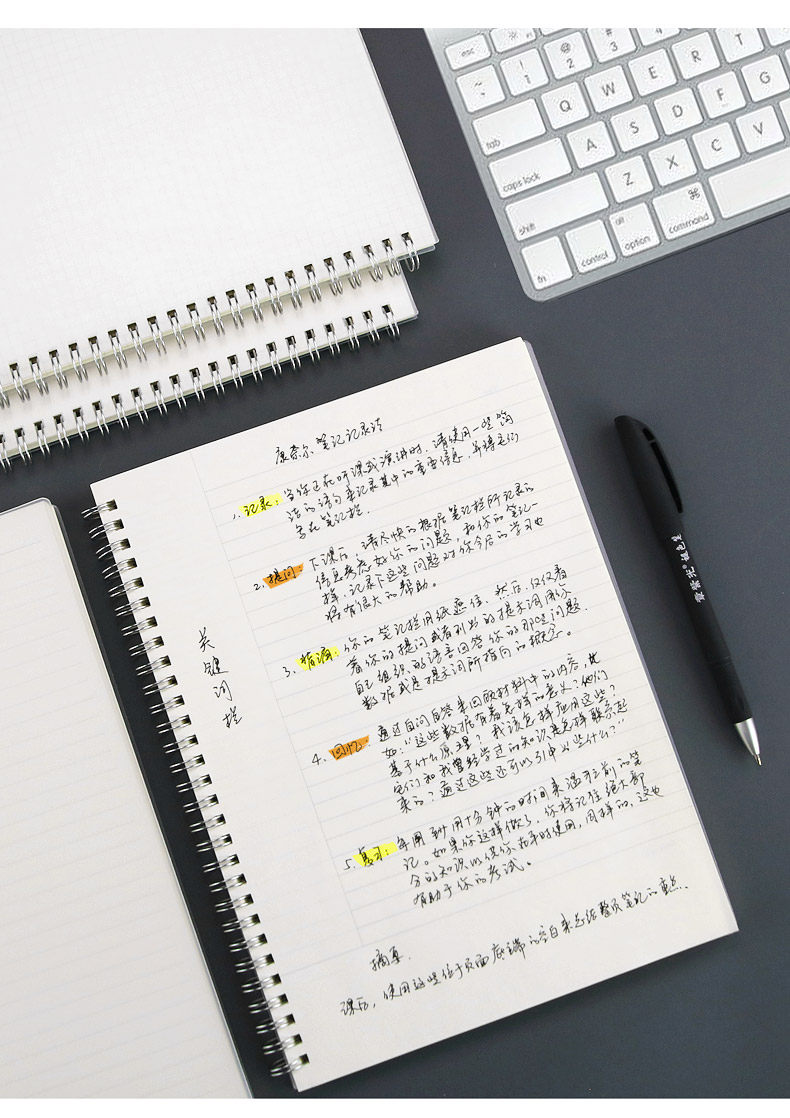 esc
~ `
! 1
@ 2
# 3
$ 4
% 5
Q W E R T
tab
A S D F G
caps lock
Z X C V
shift
fn
control
alt option
⌘ command
康奈尔笔记记录法
1. 记录：当你正在听课或演讲时，请使用一些简
洁的语句来记录其中的重要信息，并将它们
写在笔记栏.
2. 提问：下课后，请尽快的根据笔记栏所记录的
信息考虑好你的问题，和你的笔记一
样，记录下这些问题对你今后的学习也
将有很大的帮助。
3. 背诵：你的笔记栏用纸遮住，然后，仅仅看
着你的提问或者列出的提示词用你
自己组织的语言回答你的那些问题.
数据或是提示词所指向的概念。
4. 回忆：通过自问自答来回顾材料中的内容，比
如：“这些数据有着怎样的意义？他们
基于什么原理？我该怎样应用这些？
它们和我曾经学过的知识是怎样联系起
来的？通过这些还可以引申出些什么？”
5. 复习：每周到用十分钟的时间来温习之前的笔
记。如果你这样做了，你将记住绝大部
分的知识以供你在平时使用，同样的，这也
有助于你的考试。
关键词栏
摘要.
课后，使用这些位于页面底端的空白来总结整页笔记的重点.